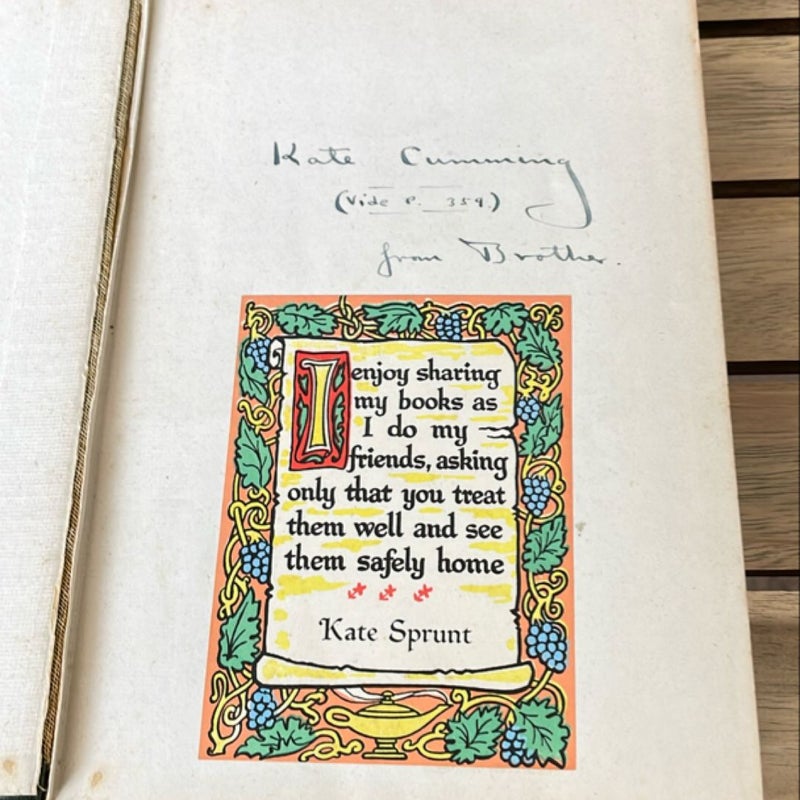 Kate Cumming
(Vide P. 359.)
from Brother.
I enjoy sharing
my books as
I do my
friends, asking
only that you treat
them well and see
them safely home
Kate Sprunt